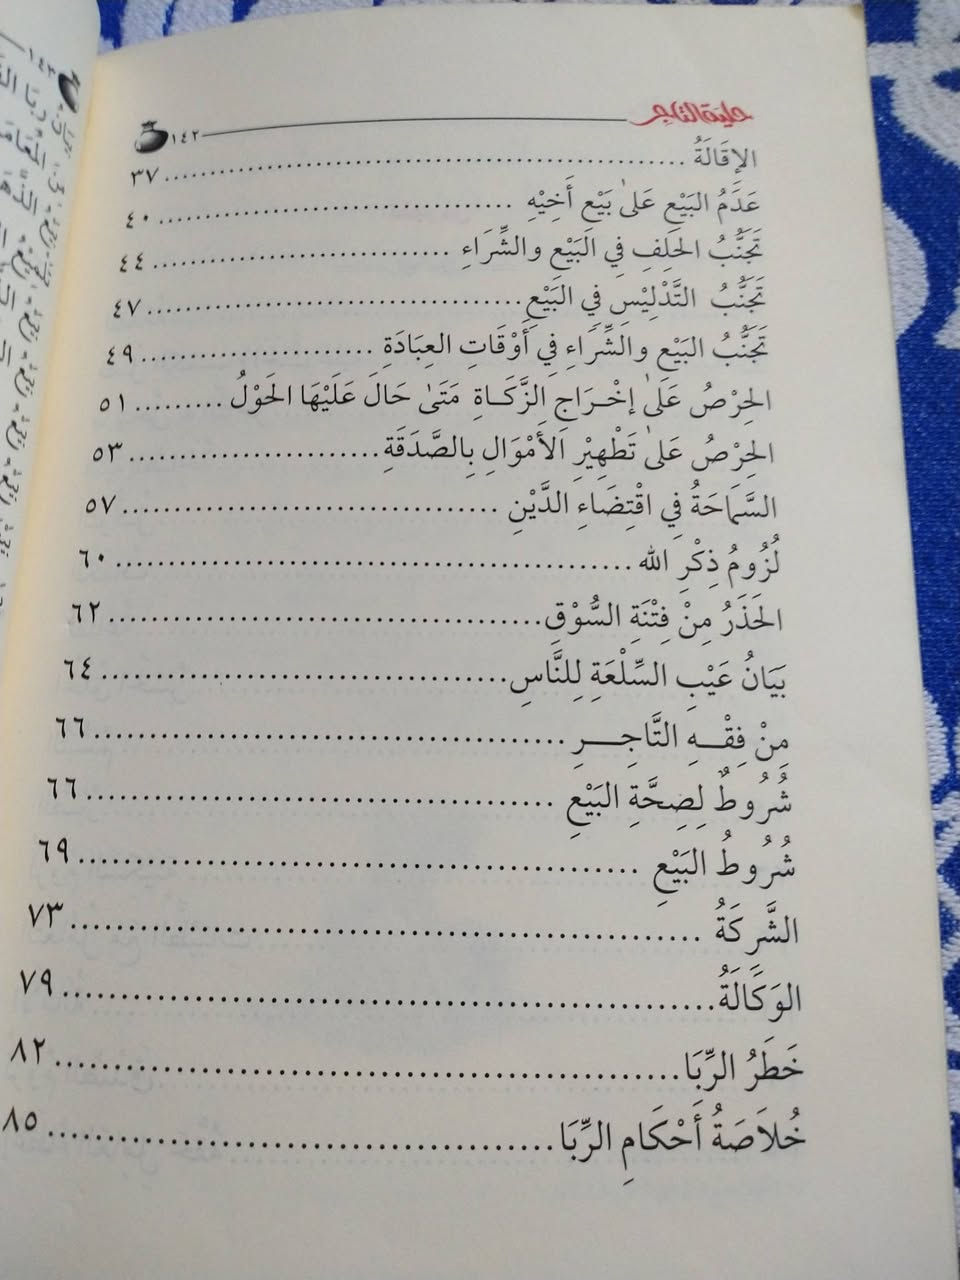 حلية التاجر ١٤٢
الإِقَالَةُ ................ ٣٧
عَدَمُ البَيْعِ عَلىٰ بَيْعِ أَخِيْهِ ................ ٤٠
تَجَنُّبُ الحَلِفِ فِي البَيْعِ والشِّرَاءِ ................ ٤٤
تَجَنُّبُ التَّدْلِيْسِ فِي البَيْعِ ................ ٤٧
تَجَنُّبُ البَيْعِ والشِّرَاءِ فِي أَوْقَاتِ العِبَادَةِ ................ ٤٩
الحِرْصُ عَلىٰ إخْرَاجِ الزَّكَاةِ مَتَىٰ حَالَ عَلَيْهَا الحَوْلُ ......... ٥١
الحِرْصُ عَلىٰ تَطْهِيْرِ الأَمْوَالِ بِالصَّدَقَةِ ................ ٥٣
السَّمَاحَةُ فِي اقْتِضَاءِ الدَّيْنِ ................ ٥٧
لُزُومُ ذِكْرِ الله ................ ٦٠
الحَذَرُ مِنْ فِتْنَةِ السُّوْقِ ................ ٦٢
بَيَانُ عَيْبِ السِّلْعَةِ لِلنَّاسِ ................ ٦٤
مِنْ فِقْهِ التَّاجِرِ ................ ٦٦
شُرُوطٌ لِصِحَّةِ البَيْعِ ................ ٦٦
شُرُوطُ البَيْعِ ................ ٦٩
الشَّرِكَةُ ................ ٧٣
الوَكَالَةُ ................ ٧٩
خَطَرُ الرِّبَا ................ ٨٢
خُلاَصَةُ أَحْكَامِ الرِّبَا ................ ٨٥